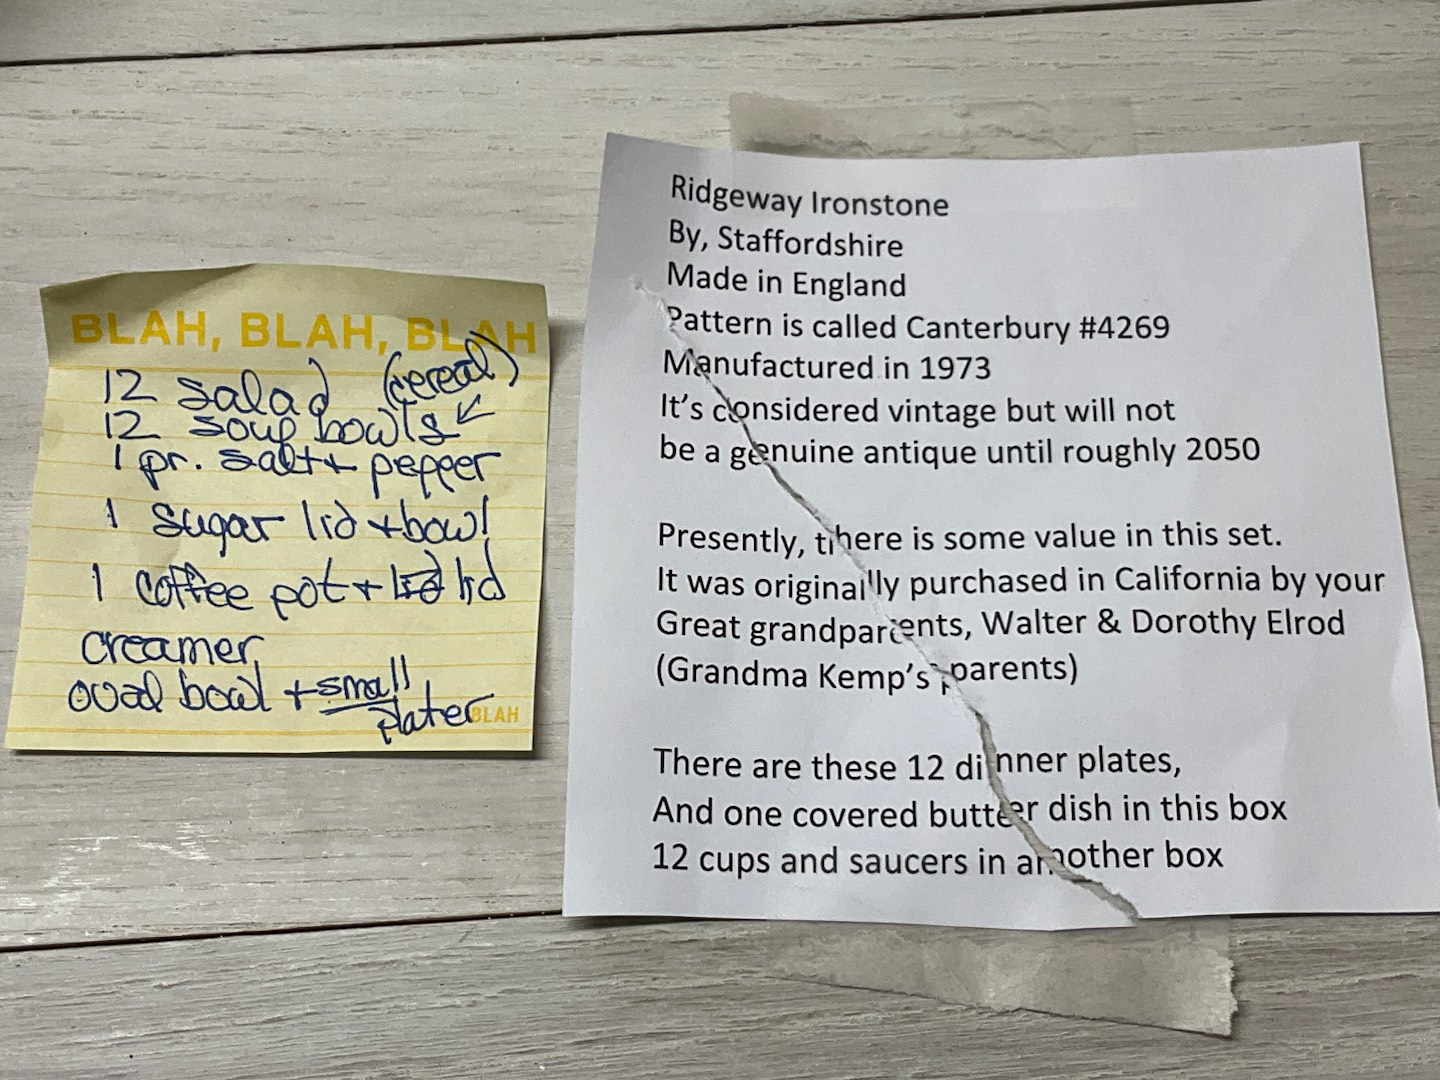 BLAH, BLAH, BLAH
12 salad (cereal)
12 soup bowls ↙
1 pr. salt + pepper
1 sugar lid + bowl
1 coffee pot + lid lid
creamer
oval bowl + small
plater
BLAH
Ridgeway Ironstone
By, Staffordshire
Made in England
Pattern is called Canterbury #4269
Manufactured in 1973
It's considered vintage but will not
be a genuine antique until roughly 2050
Presently, there is some value in this set.
It was originally purchased in California by your
Great grandparents, Walter & Dorothy Elrod
(Grandma Kemp's parents)
There are these 12 dinner plates,
And one covered butter dish in this box
12 cups and saucers in another box